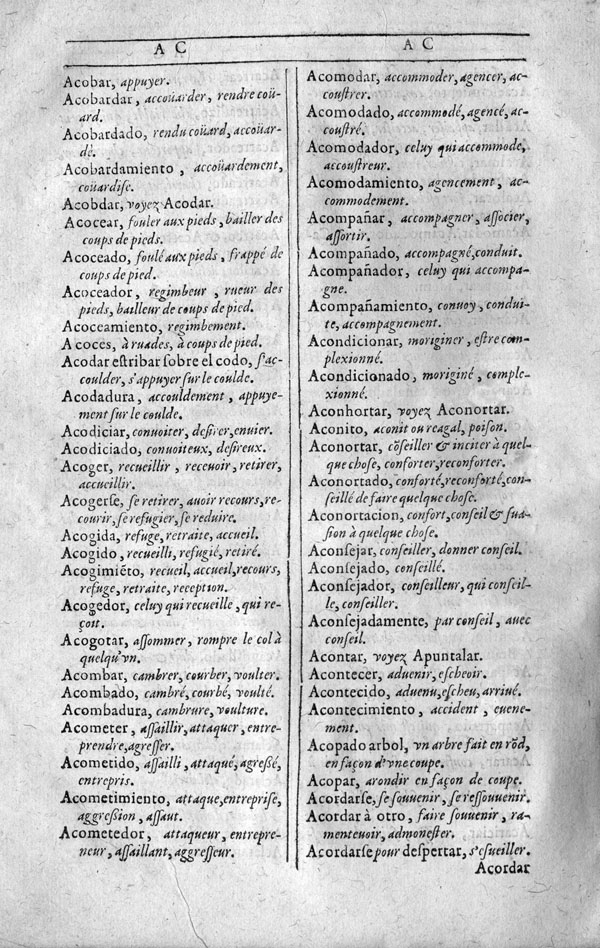 A C
Acobar, appuyer.
Acobardar, accoüarder, rendre coü-
ard.
Acobardado, rendu coüard, accoüar-
dé.
Acobardamiento, accoüardement,
coüardiſe.
Acobdar, voyez Acodar.
Acocear, fouler aux pieds, bailler des
coups de pieds.
Acoceado, foulé aux pieds, frappé de
coups de pied.
Acoceador, regimbeur, rueur des
pieds, bailleur de coups de pied.
Acoceamiento, regimbement.
A coces, à ruades, à coups de pied.
Acodar eſtribar ſobre el codo, ſ'ac-
coulder, s'appuyer ſur le coulde.
Acodadura, accouldement, appuye-
ment ſur le coulde.
Acodiciar, conuoiter, deſirer, enuier.
Acodiciado, conuoiteux, deſireux.
Acoger, recueillir, receuoir, retirer,
accueillir.
Acogerſe, ſe retirer, auoir recours, re-
courir, ſe refugier, ſe reduire.
Acogida, refuge, retraite, accueil.
Acogido, recueilli, refugié, retiré.
Acogimiẽto, recueil, accueil, recours,
refuge, retraite, reception.
Acogedor, celuy qui recueille, qui re-
çoit.
Acogotar, aſſommer, rompre le col à
quelqu'vn.
Acombar, cambrer, courber, voulter.
Acombado, cambré, courbé, voulté.
Acombadura, cambrure, voulture.
Acometer, aſſaillir, attaquer, entre-
prendre, agreſſer.
Acometido, aſſailli, attaqué, agreßé,
entrepris.
Acometimiento, attaque, entrepriſe,
aggreßion, aſſaut.
Acometedor, attaqueur, entrepre-
neur, aſſaillant, aggreſſeur.
A C
Acomodar, accommoder, agencer, ac-
couſtrer.
Acomodado, accommodé, agencé, ac-
couſtré.
Acomodador, celuy qui accommode,
accouſtreur.
Acomodamiento, agencement, ac-
commodement.
Acompañar, accompagner, aſſocier,
aſſortir.
Acompañado, accompagné, conduit.
Acompañador, celuy qui accompa-
gne.
Acompañamiento, conuoy, condui-
te, accompagnement.
Acondicionar, moriginer, eſtre com-
plexionné.
Acondicionado, moriginé, comple-
xionné.
Aconhortar, voyez Aconortar.
Aconito, aconit ou reagal, poiſon.
Aconortar, cõſeiller & inciter à quel-
que choſe, conforter, reconforter.
Aconortado, conforté, reconforté, con-
ſeillé de faire quelque choſe.
Aconortacion, confort, conſeil & ſua-
ſion à quelque choſe.
Aconſejar, conſeiller, donner conſeil.
Aconſejado, conſeillé.
Aconſejador, conſeilleur, qui conſeil-
le, conſeiller.
Aconſejadamente, par conſeil, auec
conſeil.
Acontar, voyez Apuntalar.
Acontecer, aduenir, eſcheoir.
Acontecido, aduenu, eſcheu, arriué.
Acontecimiento, accident, euene-
ment.
Acopado arbol, vn arbre fait en rõd,
en façon d'vne coupe.
Acopar, arondir en façon de coupe.
Acordarſe, ſe ſouuenir, ſe reſſouuenir.
Acordar à otro, faire ſouuenir, ra-
menteuoir, admoneſter.
Acordarſe pour deſpertar, s'eſueiller.
Acordar